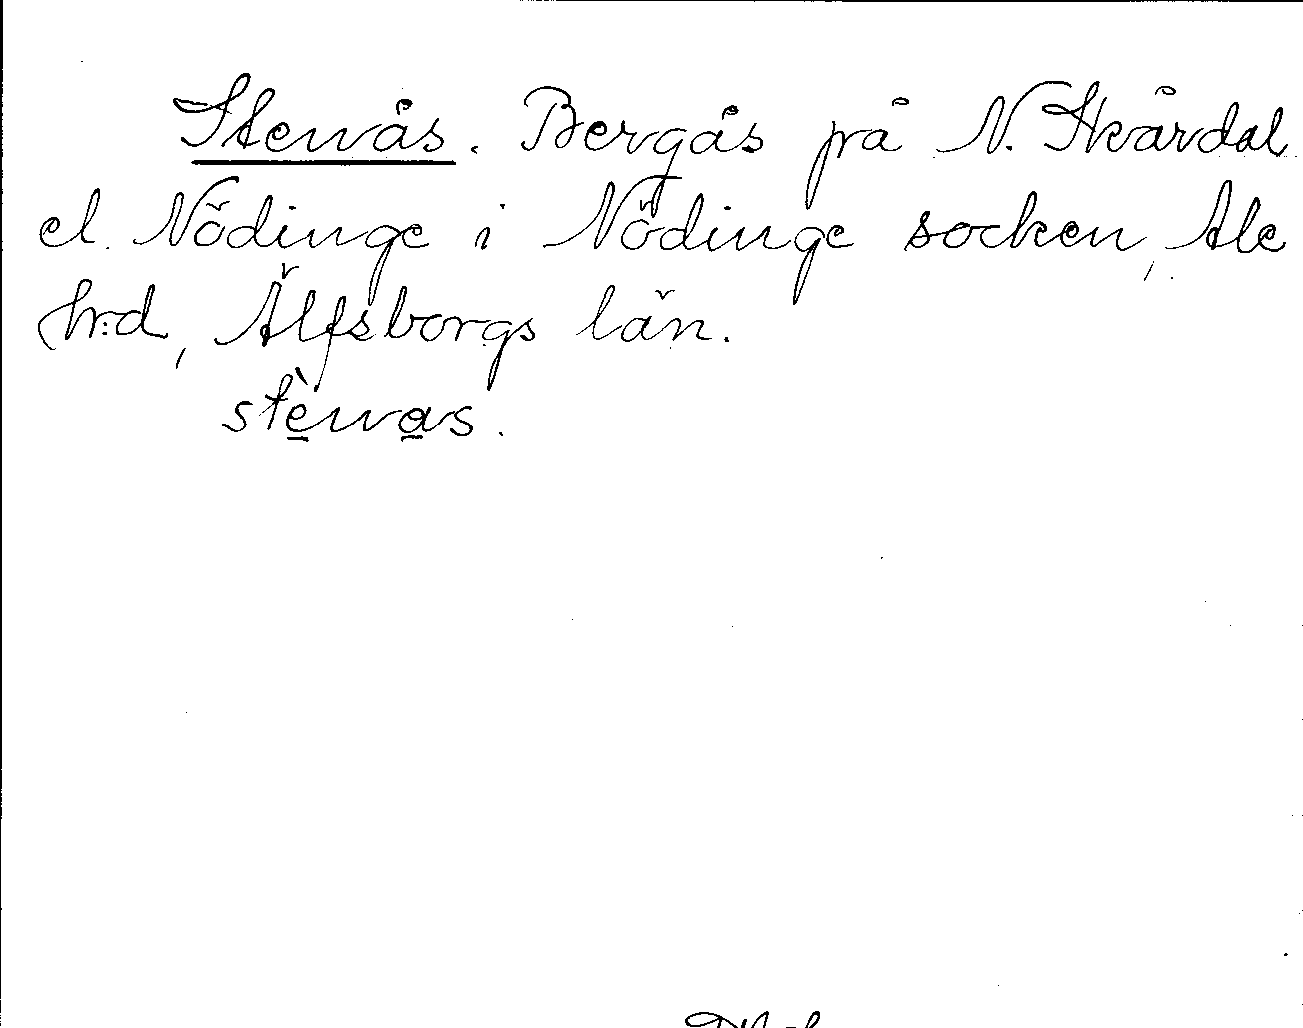 Stenås. Bergås på N. Skårdal
el. Nödinge i Nödinge socken, Ale
hrd, Älfsborgs län.
stènas.